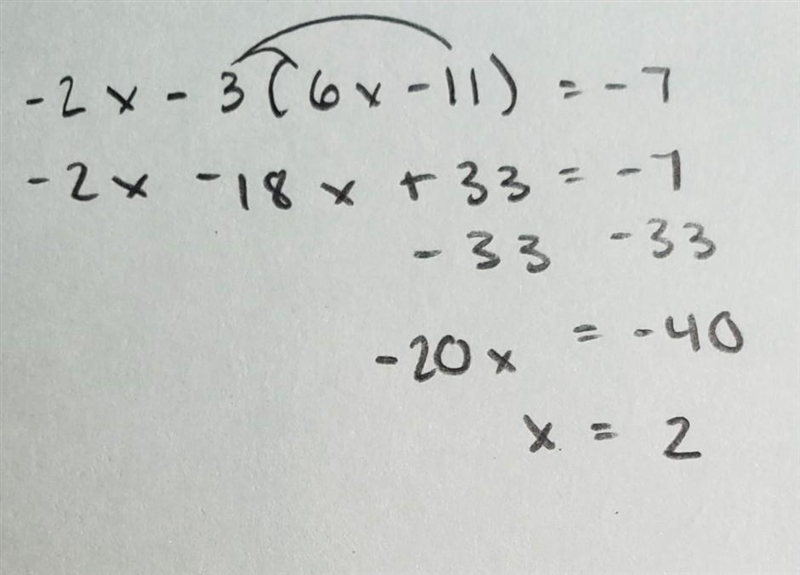 -2x - 3(6x - 11) = -7
-2x -18x + 33 = -7
-33 -33
-20x = -40
x = 2